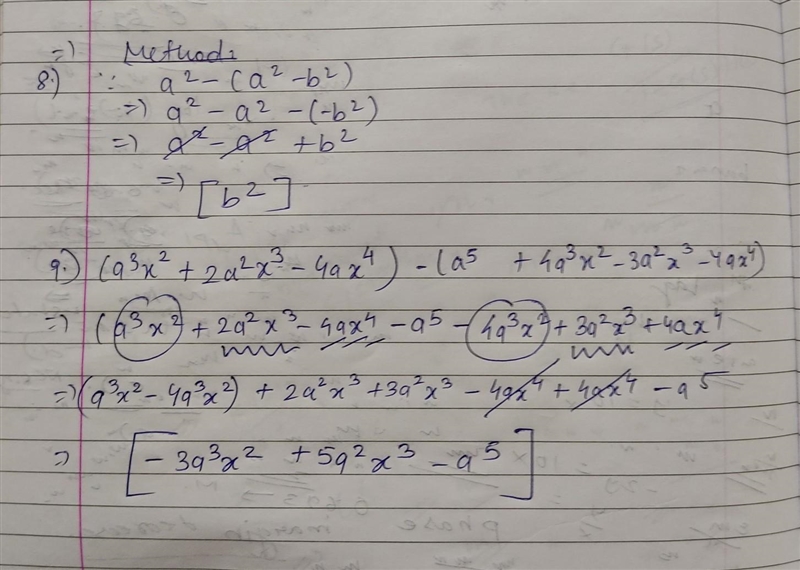 =) Method:
8.) ∵ a² - (a² - b²)
=) a² - a² - (-b²)
=) a² - a² + b²
=) [b²]
9.) (a³x² + 2a²x³ - 4ax⁴) - (a⁵ + 4a³x² - 3a²x³ - 4ax⁴)
=) (a³x² + 2a²x³ - 4ax⁴ - a⁵ - 4a³x² + 3a²x³ + 4ax⁴
=) (a³x² - 4a³x²) + 2a²x³ + 3a²x³ - 4ax⁴ + 4ax⁴ - a⁵
=) [-3a³x² + 5a²x³ - a⁵]
phase margin